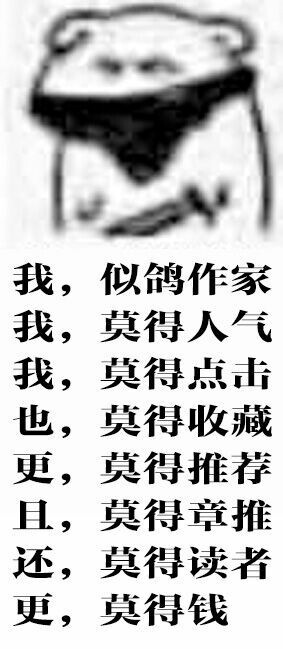 我，似鸽作家
我，莫得人气
我，莫得点击
也，莫得收藏
更，莫得推荐
且，莫得章推
还，莫得读者
更，莫得钱